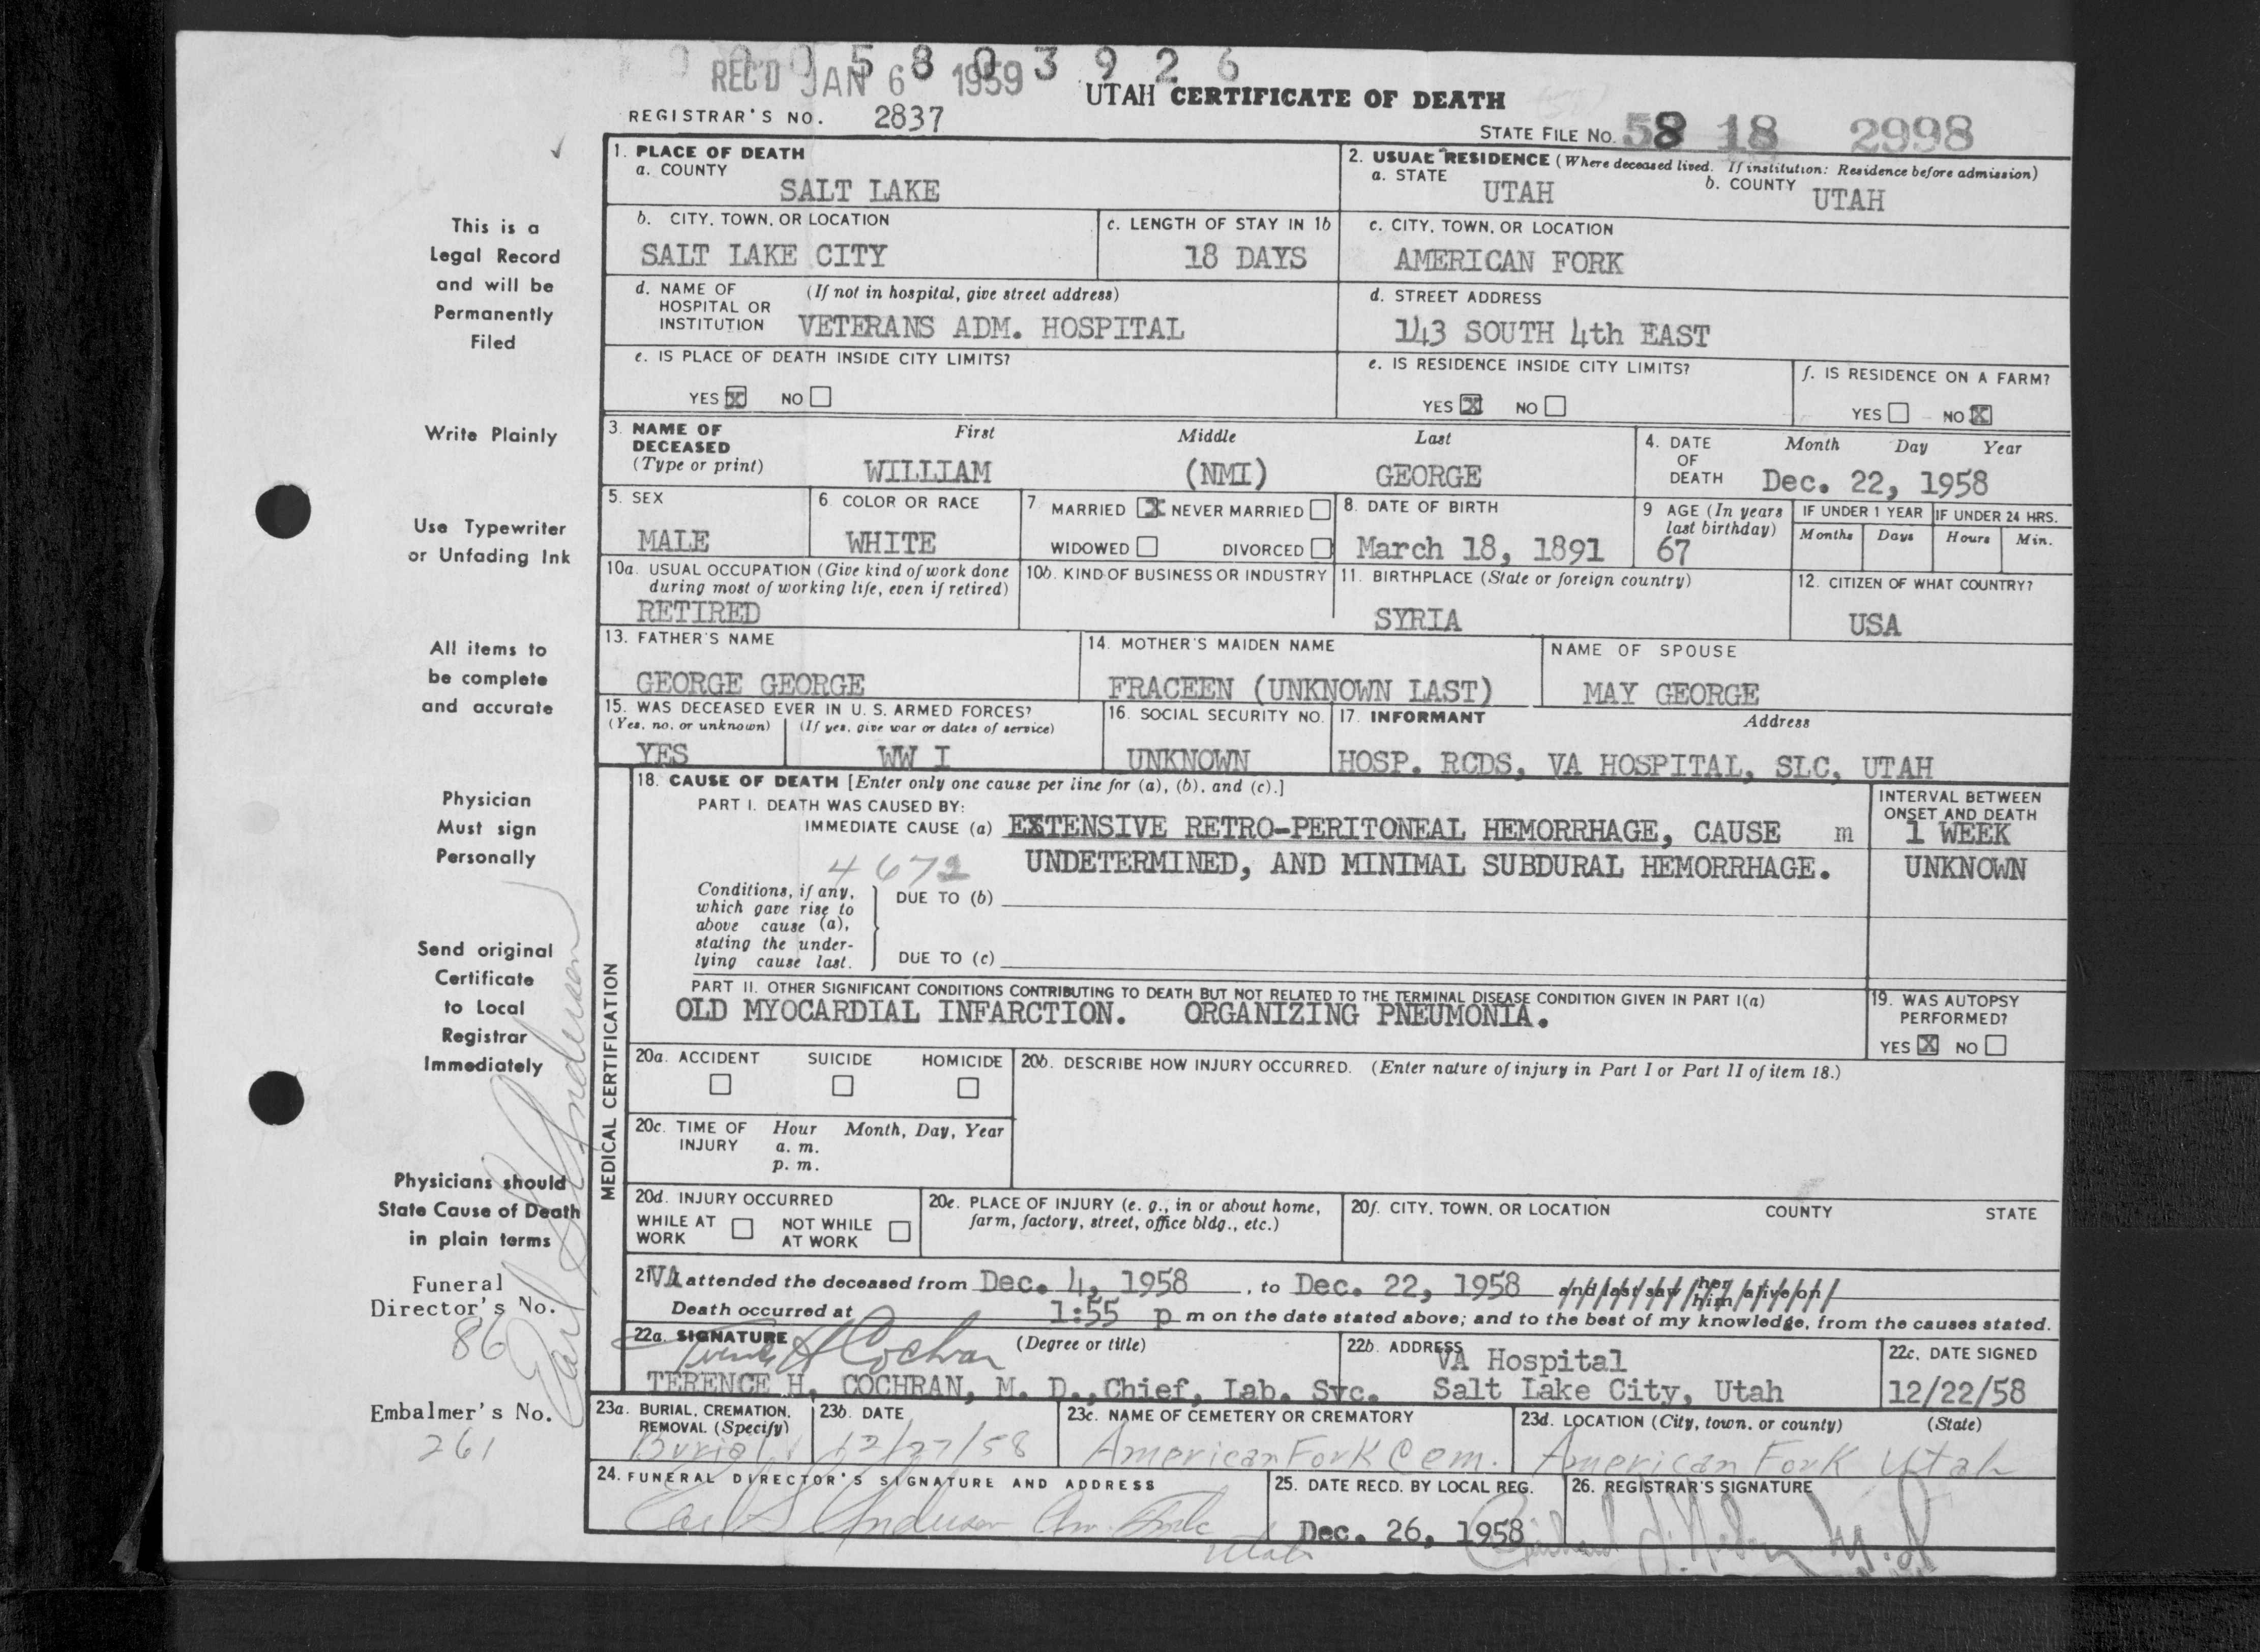 0 0 0 5 8 0 3 9 2 6
REC'D JAN 6 1959
UTAH CERTIFICATE OF DEATH
REGISTRAR'S NO. 2837
STATE FILE NO. 58 18 2998
This is a
Legal Record
and will be
Permanently
Filed
Write Plainly
Use Typewriter
or Unfading Ink
All items to
be complete
and accurate
Physician
Must sign
Personally
Send original
Certificate
to Local
Registrar
Immediately
Physicians should
State Cause of Death
in plain terms
Funeral
Director's No.
86
Embalmer's No.
261
Earl S Anderson
1. PLACE OF DEATH
a. COUNTY
SALT LAKE
2. USUAL RESIDENCE (Where deceased lived. If institution: Residence before admission)
a. STATE UTAH b. COUNTY UTAH
b. CITY, TOWN, OR LOCATION
SALT LAKE CITY
c. LENGTH OF STAY IN 1b
18 DAYS
c. CITY, TOWN, OR LOCATION
AMERICAN FORK
d. NAME OF (If not in hospital, give street address)
HOSPITAL OR
INSTITUTION VETERANS ADM. HOSPITAL
d. STREET ADDRESS
143 SOUTH 4th EAST
e. IS PLACE OF DEATH INSIDE CITY LIMITS?
YES X NO
e. IS RESIDENCE INSIDE CITY LIMITS?
YES X NO
f. IS RESIDENCE ON A FARM?
YES NO X
3. NAME OF DECEASED (Type or print)
First Middle Last
WILLIAM (NMI) GEORGE
4. DATE OF DEATH
Month Day Year
Dec. 22, 1958
5. SEX
MALE
6. COLOR OR RACE
WHITE
7. MARRIED X NEVER MARRIED
WIDOWED DIVORCED
8. DATE OF BIRTH
March 18, 1891
9 AGE (In years last birthday)
67
IF UNDER 1 YEAR
Months Days
IF UNDER 24 HRS.
Hours Min.
10a. USUAL OCCUPATION (Give kind of work done
during most of working life, even if retired)
RETIRED
10b. KIND OF BUSINESS OR INDUSTRY
11. BIRTHPLACE (State or foreign country)
SYRIA
12. CITIZEN OF WHAT COUNTRY?
USA
13. FATHER'S NAME
GEORGE GEORGE
14. MOTHER'S MAIDEN NAME
FRACEEN (UNKNOWN LAST)
NAME OF SPOUSE
MAY GEORGE
15. WAS DECEASED EVER IN U. S. ARMED FORCES?
(Yes, no, or unknown) (If yes, give war or dates of service)
YES WW I
16. SOCIAL SECURITY NO.
UNKNOWN
17. INFORMANT Address
HOSP. RCDS, VA HOSPITAL, SLC, UTAH
MEDICAL CERTIFICATION
18. CAUSE OF DEATH [Enter only one cause per line for (a), (b), and (c).]
PART I. DEATH WAS CAUSED BY:
IMMEDIATE CAUSE (a) EXTENSIVE RETRO-PERITONEAL HEMORRHAGE, CAUSE m
UNDETERMINED, AND MINIMAL SUBDURAL HEMORRHAGE.
INTERVAL BETWEEN
ONSET AND DEATH
1 WEEK
UNKNOWN
Conditions, if any,
which gave rise to
above cause (a),
stating the under-
lying cause last.
DUE TO (b)
DUE TO (c)
PART II. OTHER SIGNIFICANT CONDITIONS CONTRIBUTING TO DEATH BUT NOT RELATED TO THE TERMINAL DISEASE CONDITION GIVEN IN PART I(a)
OLD MYOCARDIAL INFARCTION. ORGANIZING PNEUMONIA.
19. WAS AUTOPSY
PERFORMED?
YES X NO
20a. ACCIDENT SUICIDE HOMICIDE
20b. DESCRIBE HOW INJURY OCCURRED. (Enter nature of injury in Part I or Part II of item 18.)
20c. TIME OF INJURY
Hour Month, Day, Year
a. m.
p. m.
20d. INJURY OCCURRED
WHILE AT WORK NOT WHILE AT WORK
20e. PLACE OF INJURY (e. g., in or about home,
farm, factory, street, office bldg., etc.)
20f. CITY, TOWN, OR LOCATION COUNTY STATE
21 VA attended the deceased from Dec. 4, 1958, to Dec. 22, 1958 and last saw her him alive on
Death occurred at 1:55 p m on the date stated above; and to the best of my knowledge, from the causes stated.
22a. SIGNATURE (Degree or title)
Terence H Cochran
TERENCE H. COCHRAN, M. D., Chief, Lab. Svc.
22b. ADDRESS
VA Hospital
Salt Lake City, Utah
22c. DATE SIGNED
12/22/58
23a. BURIAL, CREMATION,
REMOVAL (Specify)
Burial
23b. DATE
12/27/58
23c. NAME OF CEMETERY OR CREMATORY
American Fork Cem.
23d. LOCATION (City, town, or county) (State)
American Fork Utah
24. FUNERAL DIRECTOR'S SIGNATURE AND ADDRESS
Earl S Anderson Am. Fork
Utah
25. DATE RECD. BY LOCAL REG.
Dec. 26, 1958
26. REGISTRAR'S SIGNATURE